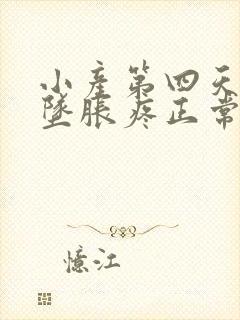 小产第四天
坠胀疼正常
憶江